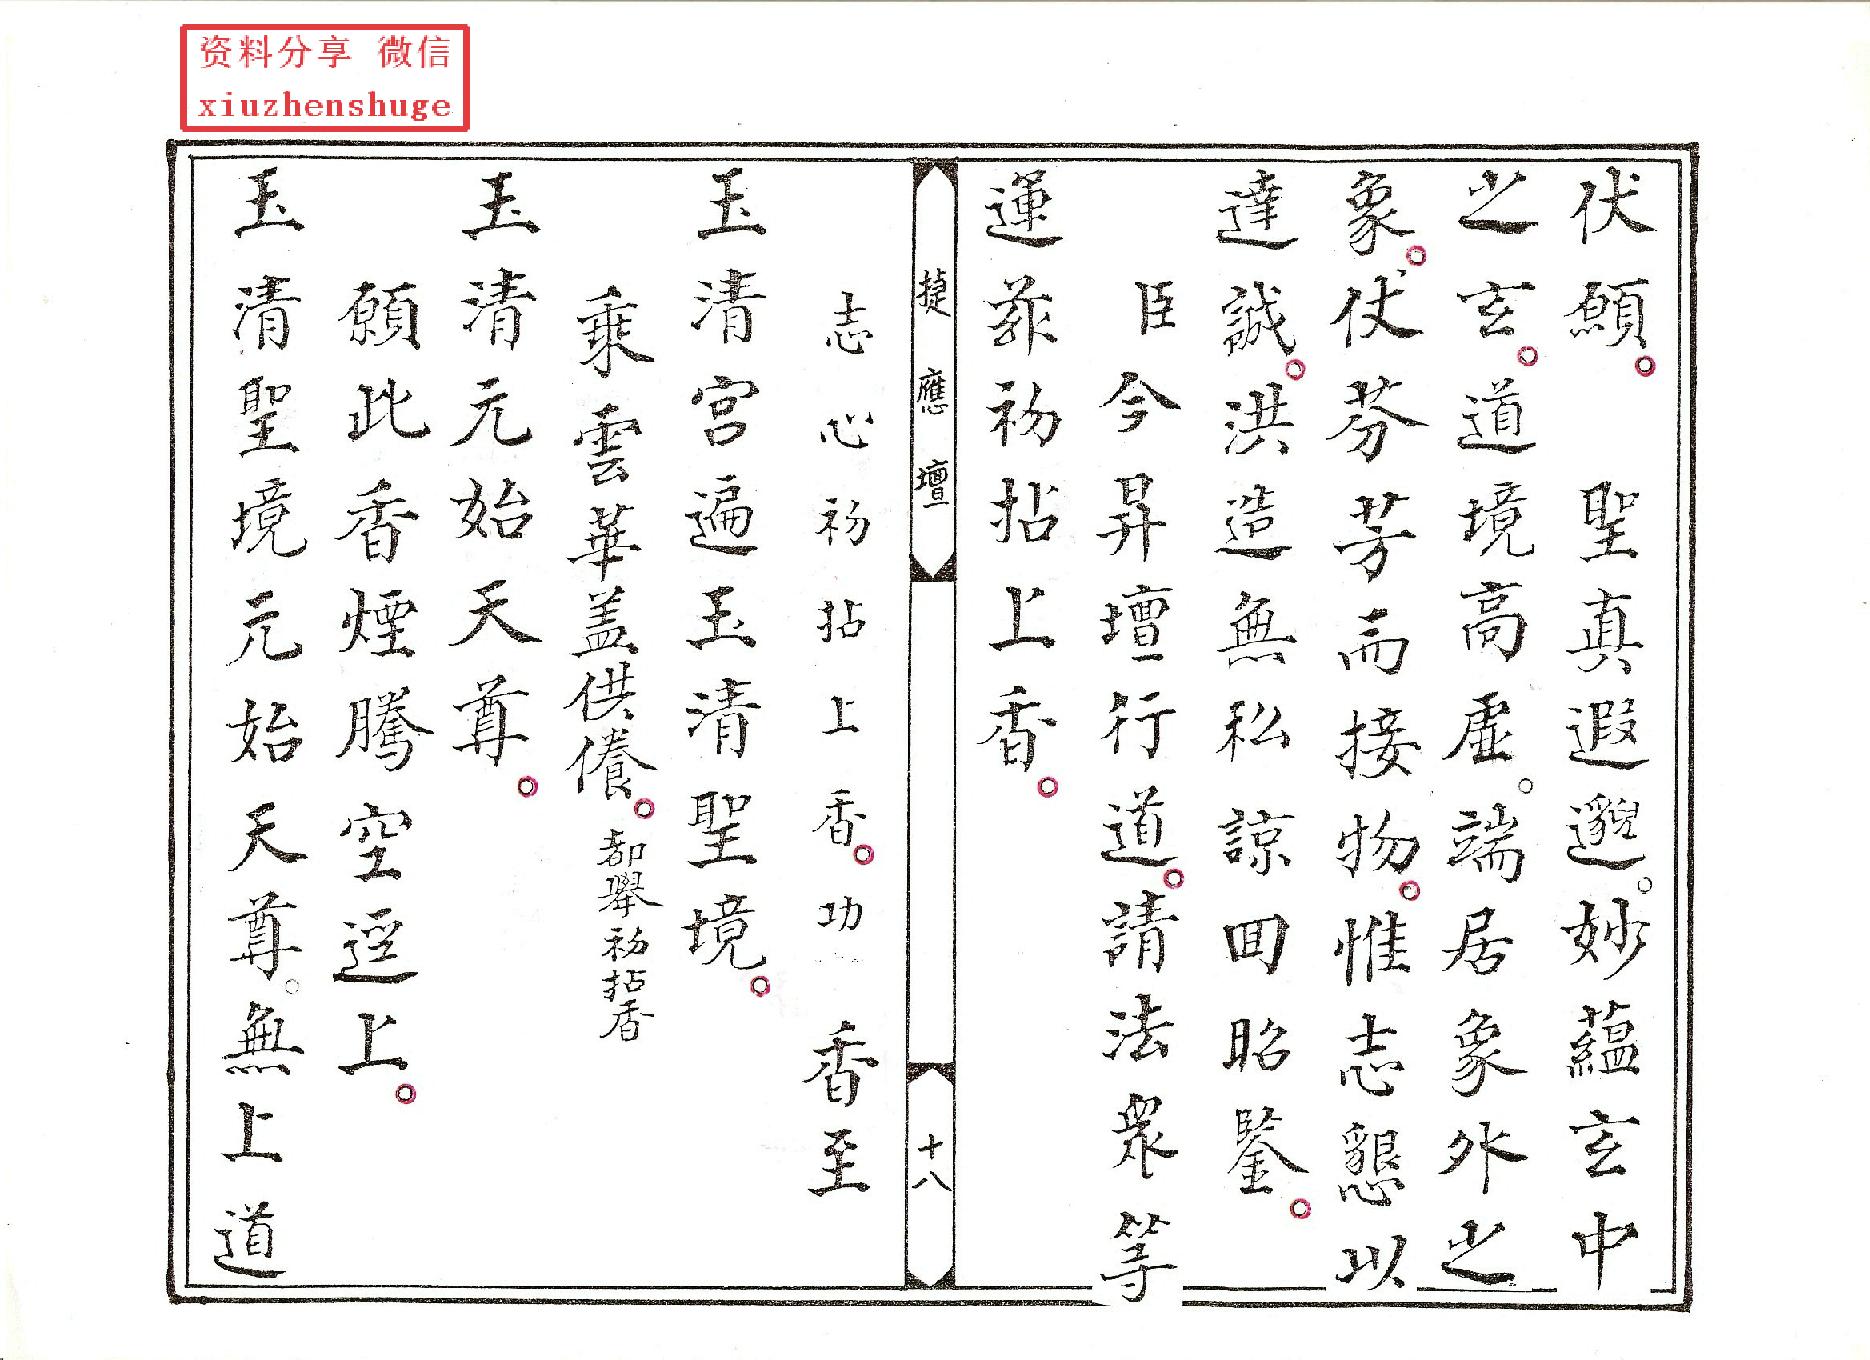 资料分享 微信
xiuzhenshuge
伏願。 聖真遐邈。妙蘊玄中
之玄。道境高虛。端居象外之
象。伏芬芳而接物。惟志懇以
達誠。洪造無私諒回昭鑒。
臣今昇壇行道。請法衆等
運茲初拈上香。
捷應壇
十八
志心初拈上香。功 香至
玉清宮遍玉清聖境。
乘雲華盖供養。都舉初拈香
玉清元始天尊。
願此香煙騰空逕上。
玉清聖境元始天尊。無上道